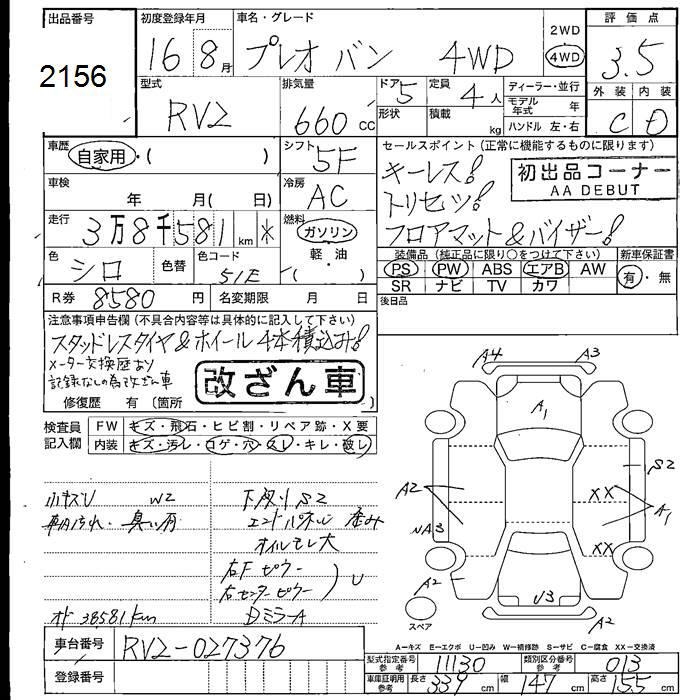 出品番号
2156
初度登録年月
16 8月
車名・グレード
プレオ バン 4WD
2WD
4WD
評価点
3.5
型式
RV2
排気量
660 cc
ドア 5
形状
定員 4人
積載 kg
ディーラー・並行
モデル年式 年
ハンドル 左・右
外装 内装
C D
車歴
自家用・( )
シフト 5F
車検
年 月( 日)
冷房 AC
走行
3万8千581 km *
燃料
ガソリン
軽・油
( )
色 シロ
色替
色コード 51E
R券 8580 円
名変期限 月 日
セールスポイント(正常に機能するものに限ります)
キーレス!
トリセツ!
フロアマット&バイザー!
初出品コーナー
AA DEBUT
装備品(純正品に限り○をつけて下さい)
PS PW ABS エアB AW
SR ナビ TV カワ
新車保証書
有・無
後日品
注意事項申告欄(不具合内容等は具体的に記入して下さい)
スタッドレスタイヤ&ホイール4本積込み!
メーター交換歴あり
記録なしの為改ざん車
改ざん車
修復歴 有 (箇所
検査員
記入欄
FW キズ・飛石・ヒビ割・リペア跡・X要
内装 キズ・汚レ・コゲ・穴・スレ・キレ・破レ
小キズU W2
車内汚れ・臭い有
下廻りS2
エンドパネル 歪み
オイルモレ大
右Fピラー
右センターピラー
U
DミラーA
オド 38581km
A4 A3
A1
A2
S2
XX
A1
WA3
XX
A2
U3
A2
スペア
A−キズ E−エクボ U−凹み W−補修跡 S−サビ C−腐食 XX−交換済
車台番号
RV2-027376
登録番号
型式指定番号 参考 11130
類別区分番号 参考 013
車庫証明用 参考
長さ 339 cm
幅 147 cm
高さ 155 cm